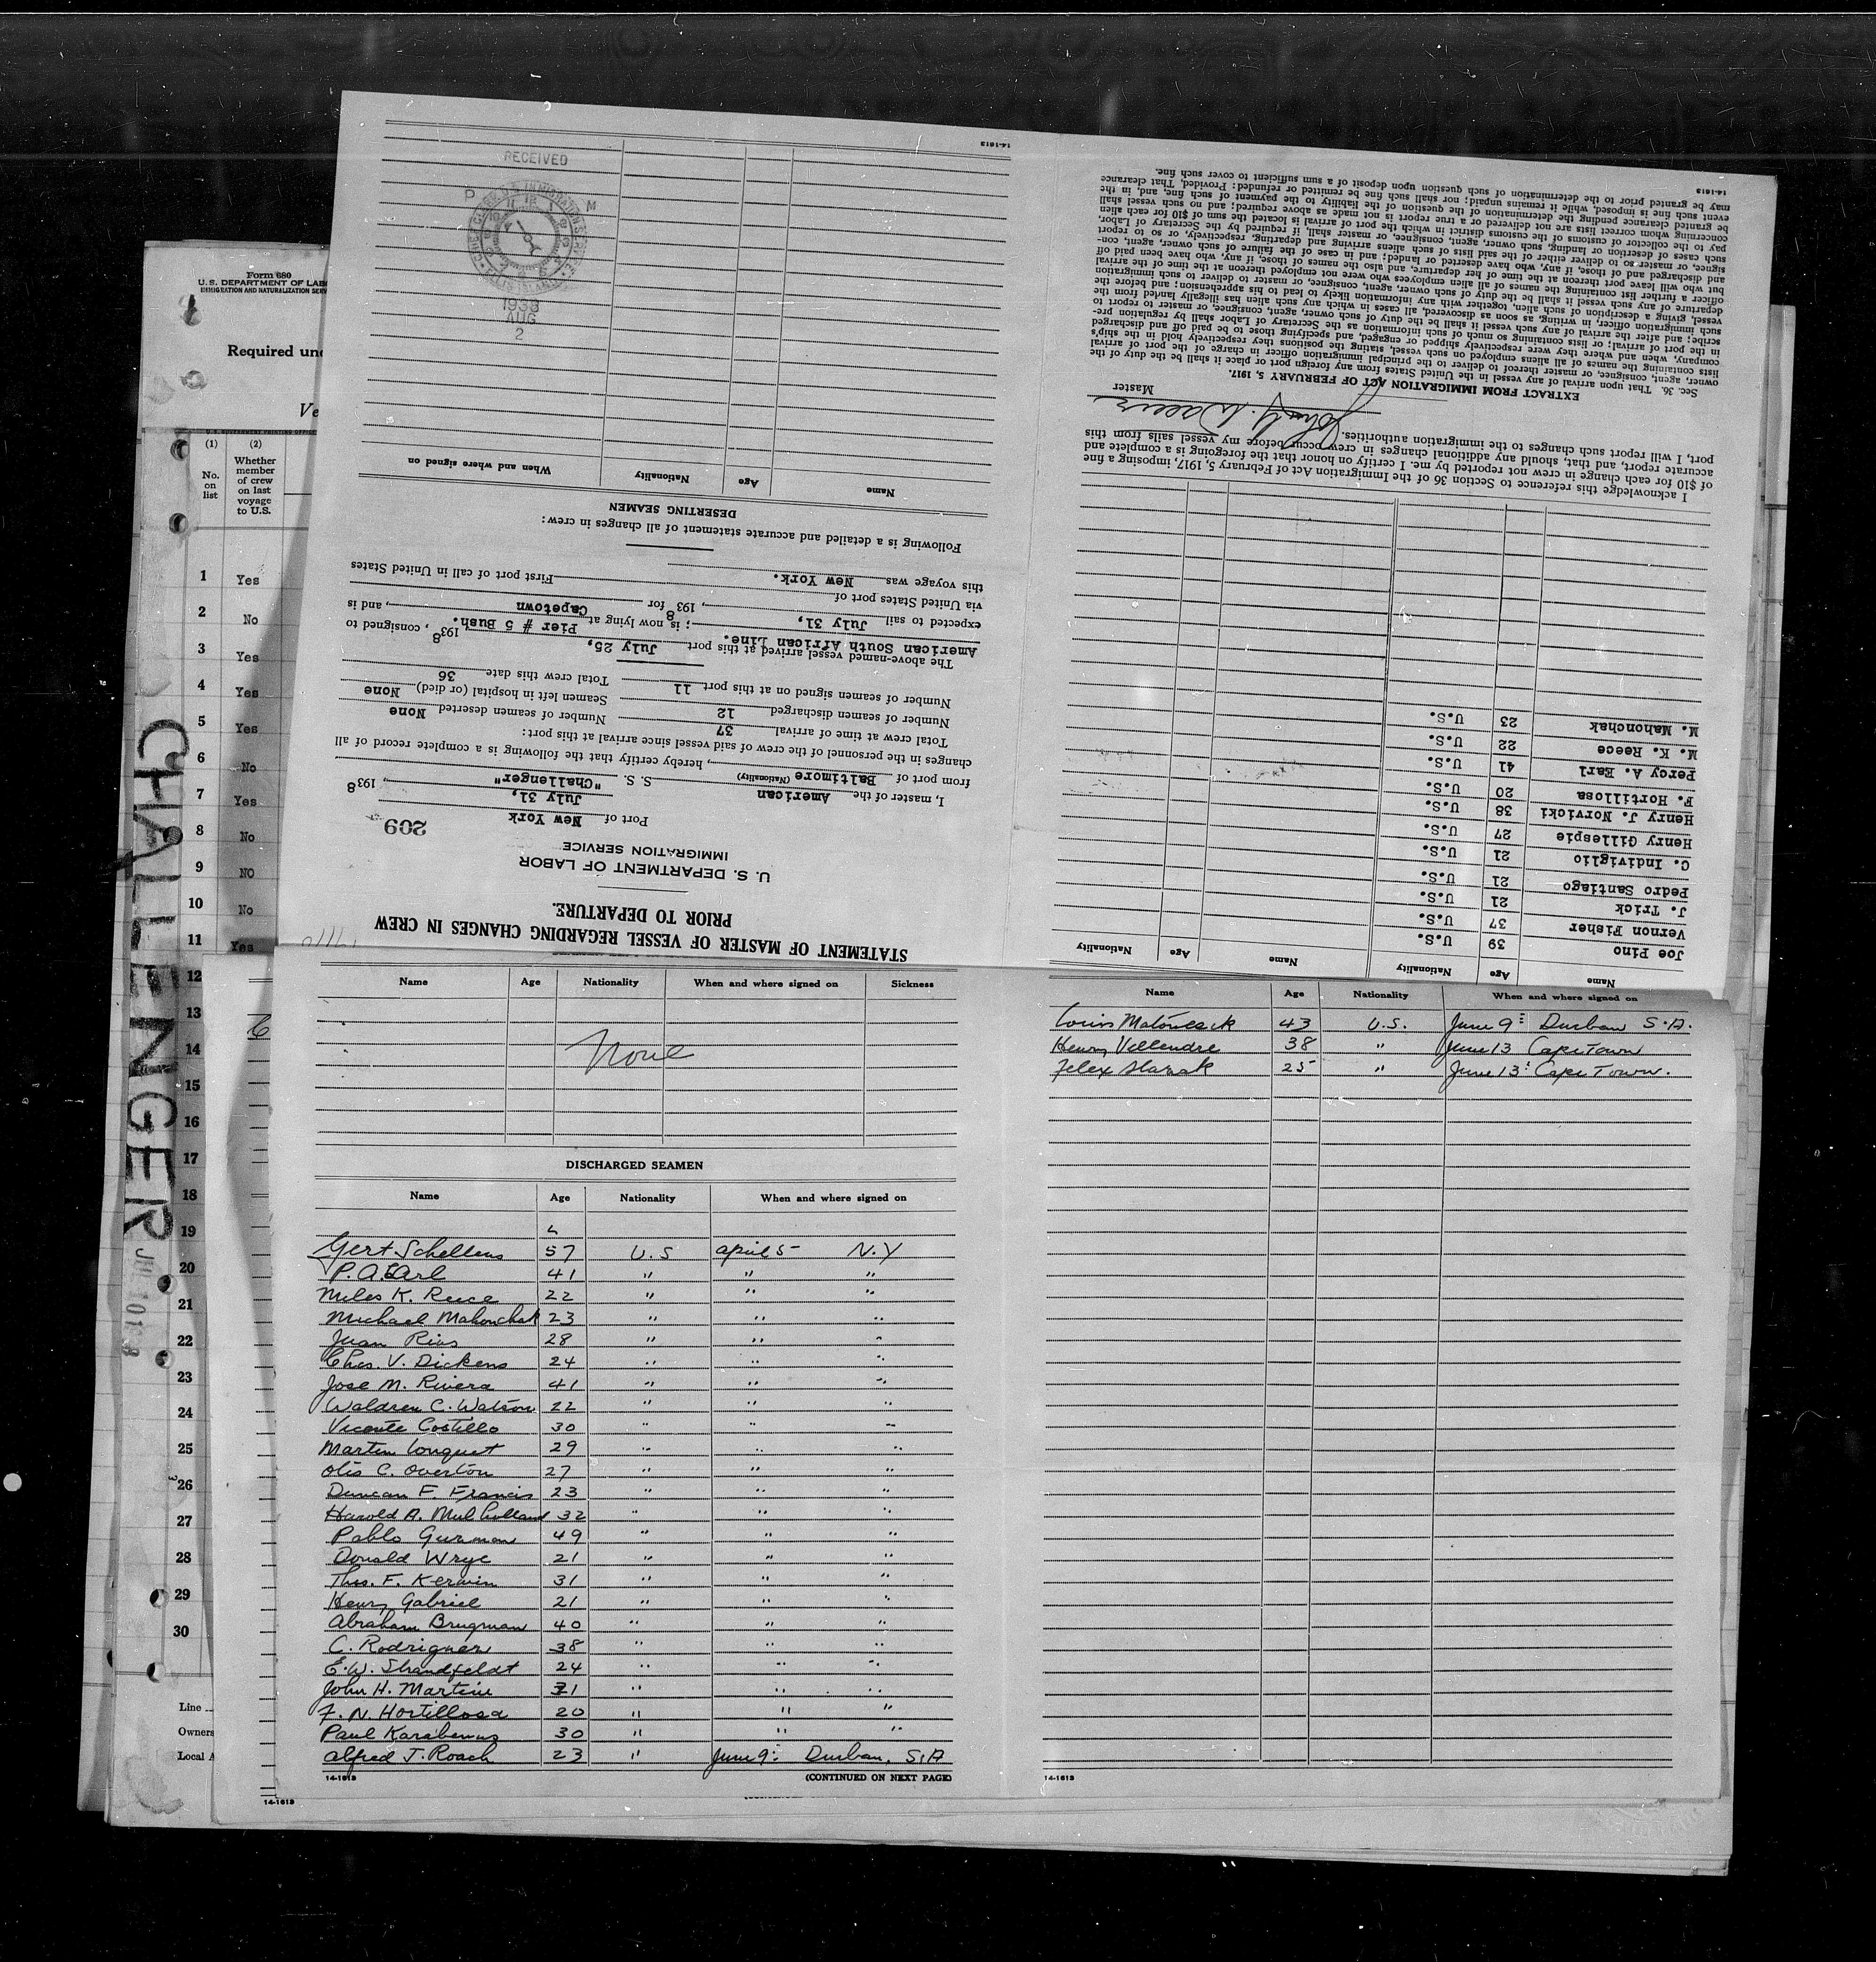 Form 680
U.S. DEPARTMENT OF LAB
IMMIGRATION AND NATURALIZATION SERV
Required und
Ve
(1) (2)
No. on list
Whether member of crew on last voyage to U.S.
1 Yes
2 No
3 Yes
4 Yes
5 Yes
6 No
7 Yes
8 No
9 NO
10 No
11 Yes
12
13
14
15
16
17
18
19
20
21
22
23
24
25
26
27
28
29
30
Line
Owners
Local A
CHALLENGER
STATEMENT OF MASTER OF VESSEL REGARDING CHANGES IN CREW
PRIOR TO DEPARTURE.
U. S. DEPARTMENT OF LABOR
IMMIGRATION SERVICE
209
Port of New York
July 31, , 1938
I, master of the American S. S. "Challenger"
(Nationality)
from port of Baltimore, hereby certify that the following is a complete record of all
changes in the personnel of the crew of said vessel since arrival at this port:
Total crew at time of arrival 37 Number of seamen deserted None
Number of seamen discharged 12 Seamen left in hospital (or died) None
Number of seamen signed on at this port 11 Total crew this date 36
The above-named vessel arrived at this port July 25, 1938, consigned to
American South African Line. ; is now lying at Pier # 5 Bush. , and is
expected to sail July 31, , 1938 for Capetown
via United States port of First port of call in United States
this voyage was New York.
Following is a detailed and accurate statement of all changes in crew:
DESERTING SEAMEN
Name Age Nationality When and where signed on
RECEIVED
P M
1938
AUG
2
14-1613
Name Age Nationality Name Age Nationality
Joe Pino 39 U.S.
Vernon Fisher 37 U.S.
J. Trick 21 U.S.
Pedro Santiago 21 U.S.
C. Indiviglio 21 U.S.
Henry Gillespie 27 U.S.
Henry J. Norvicki 38 U.S.
F. Hortillosa 20 U.S.
Percy A. Earl 41 U.S.
M. K. Reece 22 U.S.
M. Mahonchak 23 U.S.
I acknowledge this reference to Section 36 of the Immigration Act of February 5, 1917, imposing a fine
of $10 for each change in crew not reported by me. I certify on honor that the foregoing is a complete and
accurate report, and that, should any additional changes in crew occur before my vessel sails from this
port, I will report such changes to the immigration authorities.
Master
EXTRACT FROM IMMIGRATION ACT OF FEBRUARY 5, 1917.
Sec. 36. That upon arrival of any vessel in the United States from any foreign port or place it shall be the duty of the
owner, agent, consignee, or master thereof to deliver to the principal immigration officer in charge of the port of arrival
lists containing the names of all aliens employed on such vessel, stating the positions they respectively hold in the ship's
company, when and where they were respectively shipped or engaged, and specifying those to be paid off and discharged
in the port of arrival; or lists containing so much of such information as the Secretary of Labor shall by regulation pre-
scribe; and after the arrival of any such vessel it shall be the duty of such owner, agent, consignee, or master to report to
such immigration officer, in writing, as soon as discovered, all cases in which any such alien has illegally landed from the
vessel, giving a description of such alien, together with any information likely to lead to his apprehension; and before the
departure of any such vessel it shall be the duty of such owner, agent, consignee, or master to deliver to such immigration
officer a further list containing the names of all alien employees who were not employed thereon at the time of the arrival
but who will leave port thereon at the time of her departure, and also the names of those, if any, who have been paid off
and discharged and of those, if any, who have deserted or landed; and in case of the failure of such owner, agent, con-
signee, or master so to deliver either of the said lists of such aliens arriving and departing, respectively, or so to report
such cases of desertion or landing, such owner, agent, consignee, or master, shall, if required by the Secretary of Labor,
pay to the collector of customs of the customs district in which the port of arrival is located the sum of $10 for each alien
concerning whom correct lists are not delivered or a true report is not made as above required; and no such vessel shall
be granted clearance pending the determination of the question of the liability to the payment of such fine, and, in the
event such fine is imposed, while it remains unpaid; nor shall such fine be remitted or refunded: Provided, That clearance
may be granted prior to the determination of such question upon deposit of a sum sufficient to cover such fine.
14-1613
Name Age Nationality When and where signed on Sickness
None
DISCHARGED SEAMEN
Name Age Nationality When and where signed on
Gert Schellens 57 U.S April 5- N.Y
P. A. Earl 41 " " "
Miles K. Reece 22 " " "
Michael Mahonchak 23 " " "
Juan Rios 28 " " "
Chas. V. Dickens 24 " " "
Jose M. Rivera 41 " " "
Waldren C. Watson 22 " " "
Vicente Costillo 30 " " "
Martin Longuet 29 " " "
Otis C. Overton 27 " " "
Duncan F. Francis 23 " " "
Harold A. Mulholland 32 " " "
Pablo Guzman 49 " " "
Donald Wrye 21 " " "
Thos. F. Kerwin 31 " " "
Henry Gabriel 21 " " "
Abraham Brugman 40 " " "
C. Rodriguez 38 " " "
E.W. Strandfeldt 24 " " "
John H. Martin 31 " " "
F. N. Hortillosa 20 " " "
Paul 30 " " "
Alfred J. Roach 23 " June 9: Durban, S.A
14-1613 (CONTINUED ON NEXT PAGE)
14-1613
Name Age Nationality When and where signed on
Louis 43 U.S. June 9: Durban S.A.
Henry Villendre 38 " June 13 Cape Town
Felex 25 " June 13: Cape Town.
14-1613